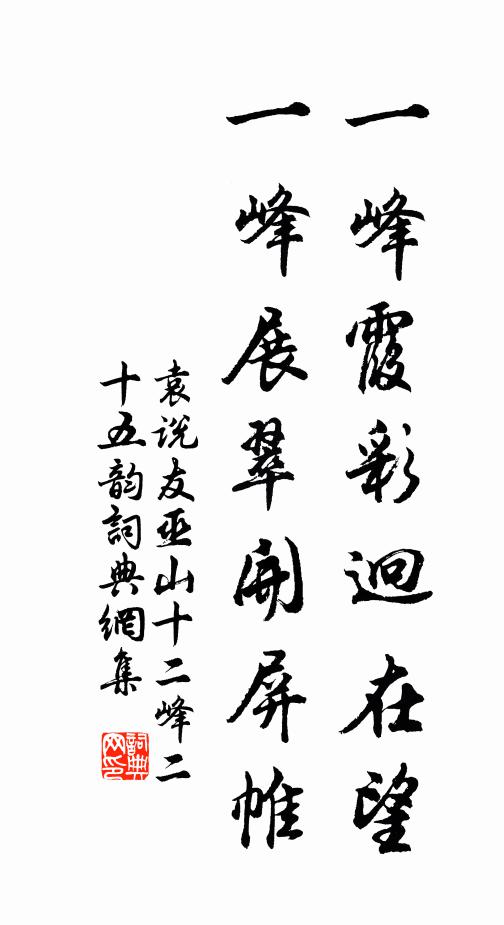 一峰霞彩迥在望
一峰展翠開屏帷
袁説友巫山十二峰二
十五韵詞典網集
詞典網印